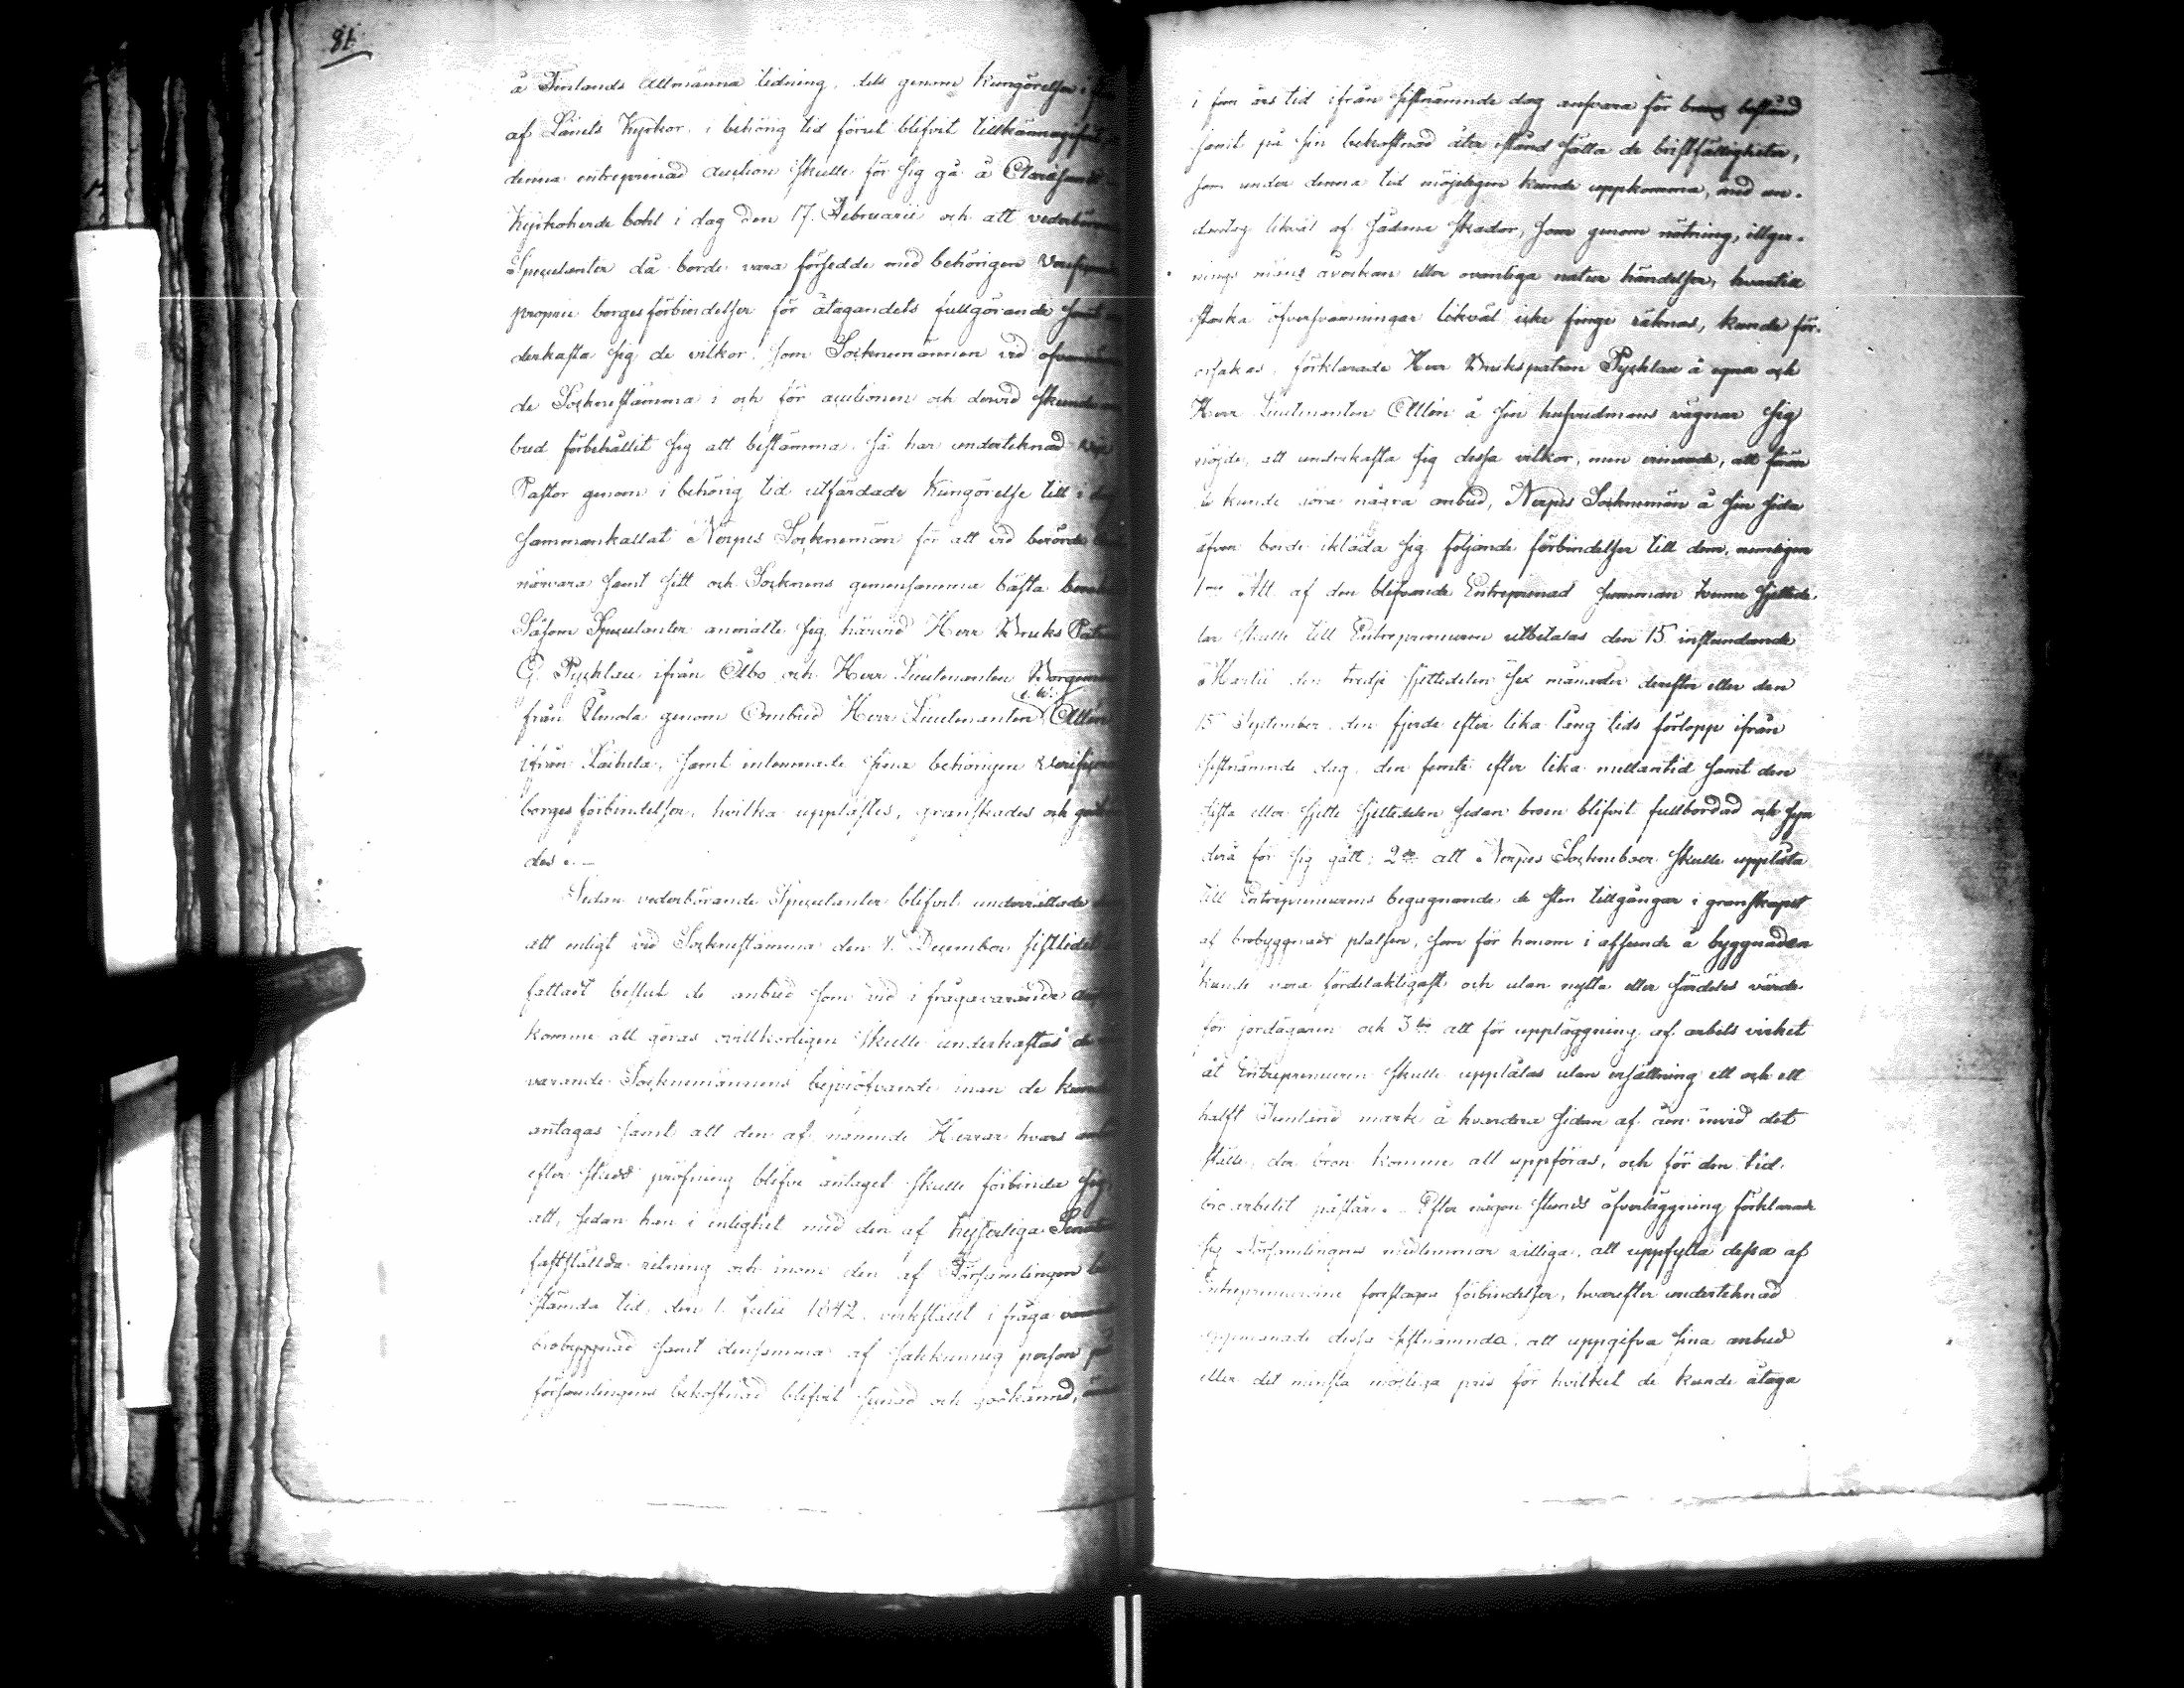 81
å Finlands Allmänna tidning, dels genom Kungörelser i
af Länets Kyrkor i behörig tid förut blifvit tillkännagifvit
denna entreprenad auction skulle för sig gå å
Kyrkoherde bohl i dag den 17. Februarii och att vederbörande
Speculanter då borde vara försedde med behörigen
proprie borgesförbindelser för åtagandets fullgörande samt
derkasta sig de vilkor som Socknemännen vid
de Socknestämma i och för auctionen och dervid skeende
bud förbehållit sig att bestämma. Så har undertecknad
Pastor genom i behörig tid utfärdade Kungörelse till i dag
sammankallat Nerpes Socknemän för att vid berörde
närvara samt sitt och Socknens gemensamma bästa
Såsom Speculanter anmälte sig härvid Herr Bruks
G. Pychlau ifrån Åbo och Herr Lieutenanten
från Ylmola genom Ombud Herr Lieutenanten Allén
ifrån Laihela, samt inlemnade sina behörigen
borgesförbindelser, hvilka upplästes, granskades och
des.
Sedan vederbörande Speculanter blifvit underrättade
att enligt vid Socknestämma den 7. December sistlidet
fattadt beslut de anbud som vid i frågavarande
komme att göras ovillkorligen skulle underkastas
varande Socknemännens bepröfvande innan de
antagas samt att den af nämnde Herrar hvars
efter skedd pröfning blefve antaget skulle förbinda sig
att, sedan han i enlighet med den af Kejserliga Senaten
fastställda ritning och inom den af Församlingen
stämda tid, den 1. Julii 1842, verkställt i fråga
brobyggnad samt densamma af sakkunnig person på
församlingens bekostnad blifvit synad och godkänd,
i fem års tid ifrån sistnämnde dag ansvara för brons bestånd
samt på sin bekostnad åter istånd sätta de bristfälligheter,
som under denna tid möjeligen kunde uppkomma, med un-
dantag likväl af sådane skador, som genom nötning, illger-
nings mäns åverkan eller ovanliga natur händelser, hvartill
starka öfversvämningar likväl icke finge räknas, kunde för-
orsakas, förklarade Herr Brukspatron Pychlau å egna och
Herr Lieutenanten Allén å sin hufvudmans vägnar sig
nöjde, att underkasta sig dessa vilkor, men erinrade, att förän
de kunde göra några anbud, Nerpes Socknemän å sin sida
äfven borde ikläda sig följande förbindelser till dem, nemligen
1mo Att af den blifvande Entreprenad summan tvenne sjettede-
lar skulle till Entrepreneuren utbetalas den 15 instundande
Martii den tredje sjettedelen sex månader derefter eller den
15 September, den fjerde efter lika lång tids förlopp ifrån
sistnämnde dag, den femte efter lika mellantid samt den
sista eller sjette sjettedelen sedan bron blifvit fullbordad och syn
derå för sig gått; 2do att Nerpes Socknеboer skulle upplåta
till Entrepreneurens begagnande de sten tillgångar i granskapet
af brobyggnads platsen, som för honom i afseende å byggnaden
kunde vara fördelaktigast och utan nytta eller särdeles värde
för jordägaren och 3tio att för uppläggning af arbets virket
åt Entrepreneuren skulle upplåtas utan ersättning ett och ett
halft Tunland mark å hvardera sidan af åen invid det
ställe, der bron komme att uppföras, och för den tid,
bro arbetet påstår. Efter någon stunds öfverläggning förklarade
sig Församlingens medlemmar villiga, att uppfylla dessa af
Entrepreneurerne föreslagne förbindelser, hvarefter undertecknad
uppmanade dessa sistnämnda, att uppgifva sina anbud
eller det minsta möjliga pris för hvilket de kunde åtaga